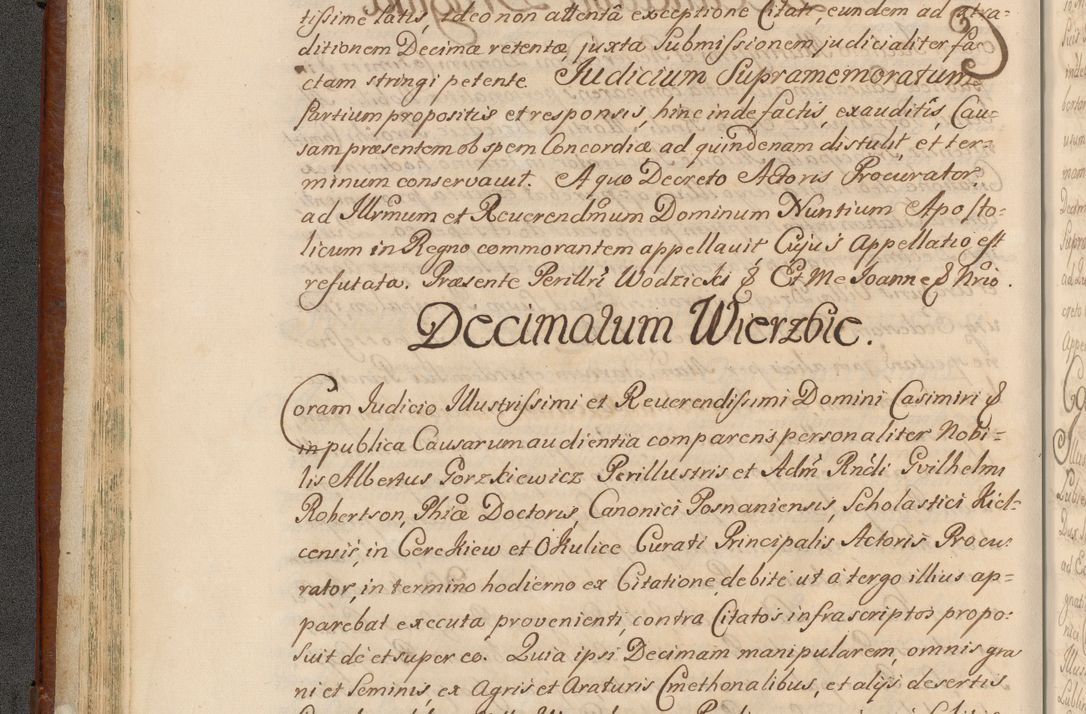 tissime latis, ideo non attenta exceptione Citati, eundem ad extra=
ditionem Decimæ retentæ, juxta Submissionem judicialiter fa=
ctam stringi petente Judicium Supramemoratum
Partium propositis et responsis, hinc inde factis, exauditis, Cau=
sam præsentem ob spem Concordiæ ad quindenam distulit, et ter=
minum conservavit. A quo Decreto Actoris Procurator,
ad Illrmum et Reverendmum Dominum Nuntium Aposto=
licum in Regno commorantem appellavit, Cujus Appellatio est
refutata. Præsente Perillri Wodzicki & Et Me Joanne & Nrio.
Decimalum Wierzbie.
Coram Judicio Illustrissimi et Reverendissimi Domini Casimiri &
in publica Causarum audientia comparens personaliter Nobi=
lis Albertus Gorzkiewicz Perillustris et Adm Rndi Gvilhelmi
Robertson, Phiæ Doctoris, Canonici Posnaniensis, Scholastici Kiel=
censis, in Cerekiew et Okulice Curati Principalis Actoris Procu=
rator, in termino hodierno ex Citatione debite ut a tergo illius ap=
parebat executa provenienti, contra Citatos infrascriptos propo=
suit de et super eo. Quia ipsi Decimam manipularem, omnis gra
ni et Seminis, ex Agris et Araturis Cmethonalibus, et alijs desertis